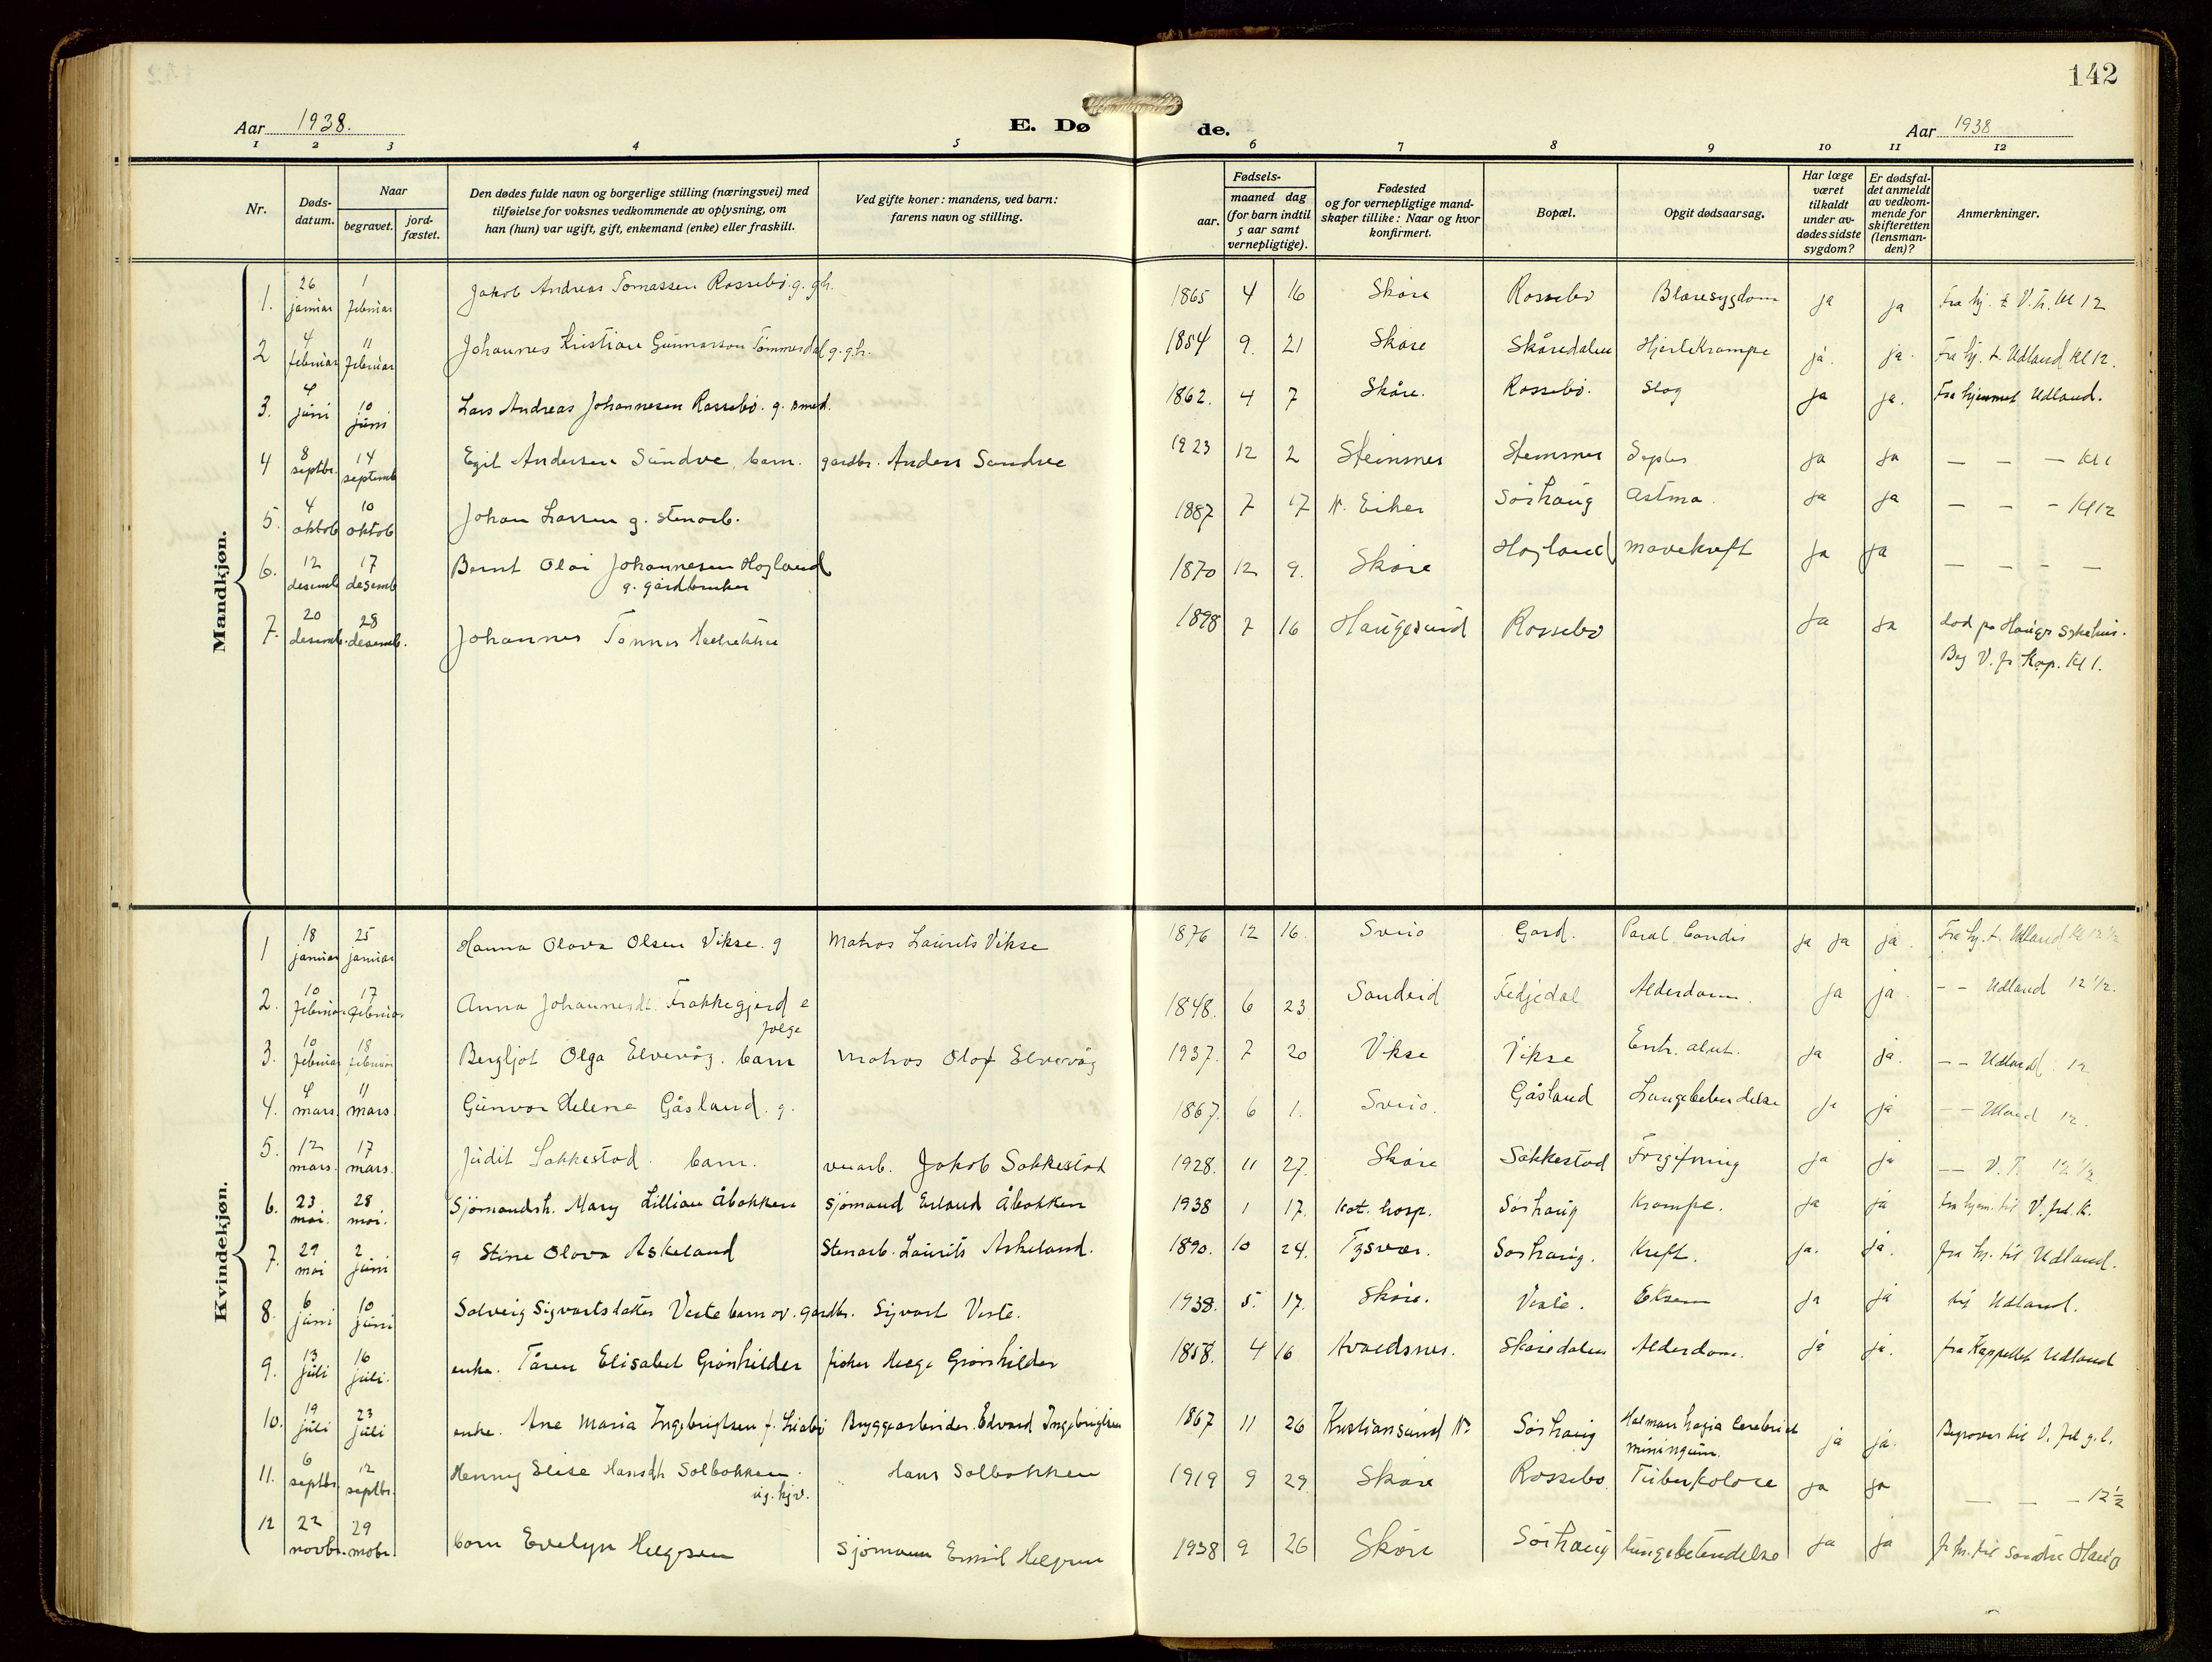 142
Aar 1938.
E. Døde.
Aar 1938
1 2 3 4 5 6 7 8 9 10 11 12
Nr.
Døds-datum.
Naar
begravet.
jord-fæstet.
Den dødes fulde navn og borgerlige stilling (næringsvei) med
tilføielse for voksnes vedkommende av oplysning, om
han (hun) var ugift, gift, enkemand (enke) eller fraskilt.
Ved gifte koner: mandens, ved barn:
farens navn og stilling.
Fødsels-
aar.
maaned dag
(for barn indtil
5 aar samt
vernepligtige).
Fødested
og for vernepligtige mand-
skaper tillike: Naar og hvor
konfirmert.
Bopæl.
Opgit dødsaarsag.
Har læge
været
tilkaldt
under av-
dødes sidste
sygdom?
Er dødsfal-
det anmeldt
av vedkom-
mende for
skifteretten
(lensman-
den)?
Anmerkninger.
Mandkjøn.
1. 26 januar 1 februar Jakob Andreas Tomassen Rossebö. g. gh. 1865 4 16 Skåre Rossebö Blæresygdom ja ja Fra hj. t. V. fr. kl 12
2 4 februar 11 februar Johannes Kristian Gunnarson Tömmerdal g. g.h. 1854 9. 21 Skåre Skåredalen Hjertekrampe ja. ja. Fra hj. t. Udland kl 12.
3. 4 juni 10 juni Lars Andreas Johannesen Rossebö. g. smed. 1862. 4 7 Skåre. Rossebö. slag ja ja. Fra hjemmet Udland.
4 8 septbr. 14 septemb Egil Andersen Sundve, barn. gardbr. Anders Sundve 1923 12 2 Steinsnes Steinsnes ja ja — — — kl 1
5. 4 oktob 10 oktob Johan Larsen g. stenarb. 1887 7 17 N. Eiker Sörhaug Astma. ja ja — — - kl 12
6. 12 desemb 17 desemb Bernt Olai Johannesen Hogland
g. gårdbruker 1870 12 9. Skåre Hogland mavekreft ja ja — — — —
7. 20 desemb. 28 desemb. Johannes Tönnes 1898 7 16 Haugesund Rossebö ja ja död på Haugs sykehus.
Beg V. fr Kap. kl 1.
Kvindekjøn.
1 18 januar 25 januar Hanna Olava Olsen Vikse. g Matros Laurits Vikse 1876 12 16. Sveio Gard. ja ja ja. Fra hj. t. Udland kl 12 1/2
2. 10 februar 17 februar Anna Johannesdt. Frakkegjerd e
folge 1848. 6 23 Sandeid Fedjedal Alderdom. ja ja. - - Udland 12 1/2.
3. 10 februar 18 februar Bergljot Olga Elvevåg. barn Matros Olaf Elvevåg 1937. 7 20 Vikse Vikse Ent. akut. ja ja. - - Udland 12
4. 4 mars 11 mars Gunvor Helene Gåsland. g. 1867. 6 1. Sveio. Gåsland Lungebetendelse ja ja - - 12.
5. 12 mars. 17 mars. Judit Sakkestad. barn. Jakob Sakkestad 1928. 11 27. Skåre Sakkestad Forgiftning ja ja — V. F. 12 1/2
6. 23 mai. 28 mai. Sjömandsh. Mary Lillian Åbakken sjömand Erland Åbakken 1938 1 17. kat. hosp. Sörhaug Krampe. ja ja fra hjem. til V. fred. k.
7. 29 mai 2 juni g Stine Olava Askeland Stenarb. Laurits Askeland. 1890. 10 24. Tysvær. Sörhaug. Kreft. ja. ja. fra hj. til Udland.
8. 6 juni 10 juni Solveig Sigvartsdatter Veste barn av. gardbr. Sigvart Veste. 1938. 5. 17. Skåre. Veste. Eksem ja ja til Udland.
9. 13 juli 16 juli. enke. Tåren Elisabet Grönhilder fisker Helge Grönhilder 1858. 4 16 Avaldsnes. Skåredalen Alderdom. ja ja. fra Kappellet Udland
10. 19 juli 23 juli enke. Ane Maria Ingebrigtsen f. Bryggearbeider. Edvard Ingebrigtsen 1867 11 26 Kristiansund N. Sörhaug ja ja. Begraves til V. fred g. l.
11. 6 septbr. 12 septbr. Henny Elise Hansdtr Solbakken.
ug. hjv. Hans Solbakken 1919 9 29 Skåre Rossebö Tuberkolose ja ja — — — 12 1/2
12 22 novbr. 29 barn Evelyn Helgesen Sjömann Emil Helgesen 1938 9 26 Skåre Sörhaug lungebetendelse ja ja fr. hj. til Söndre